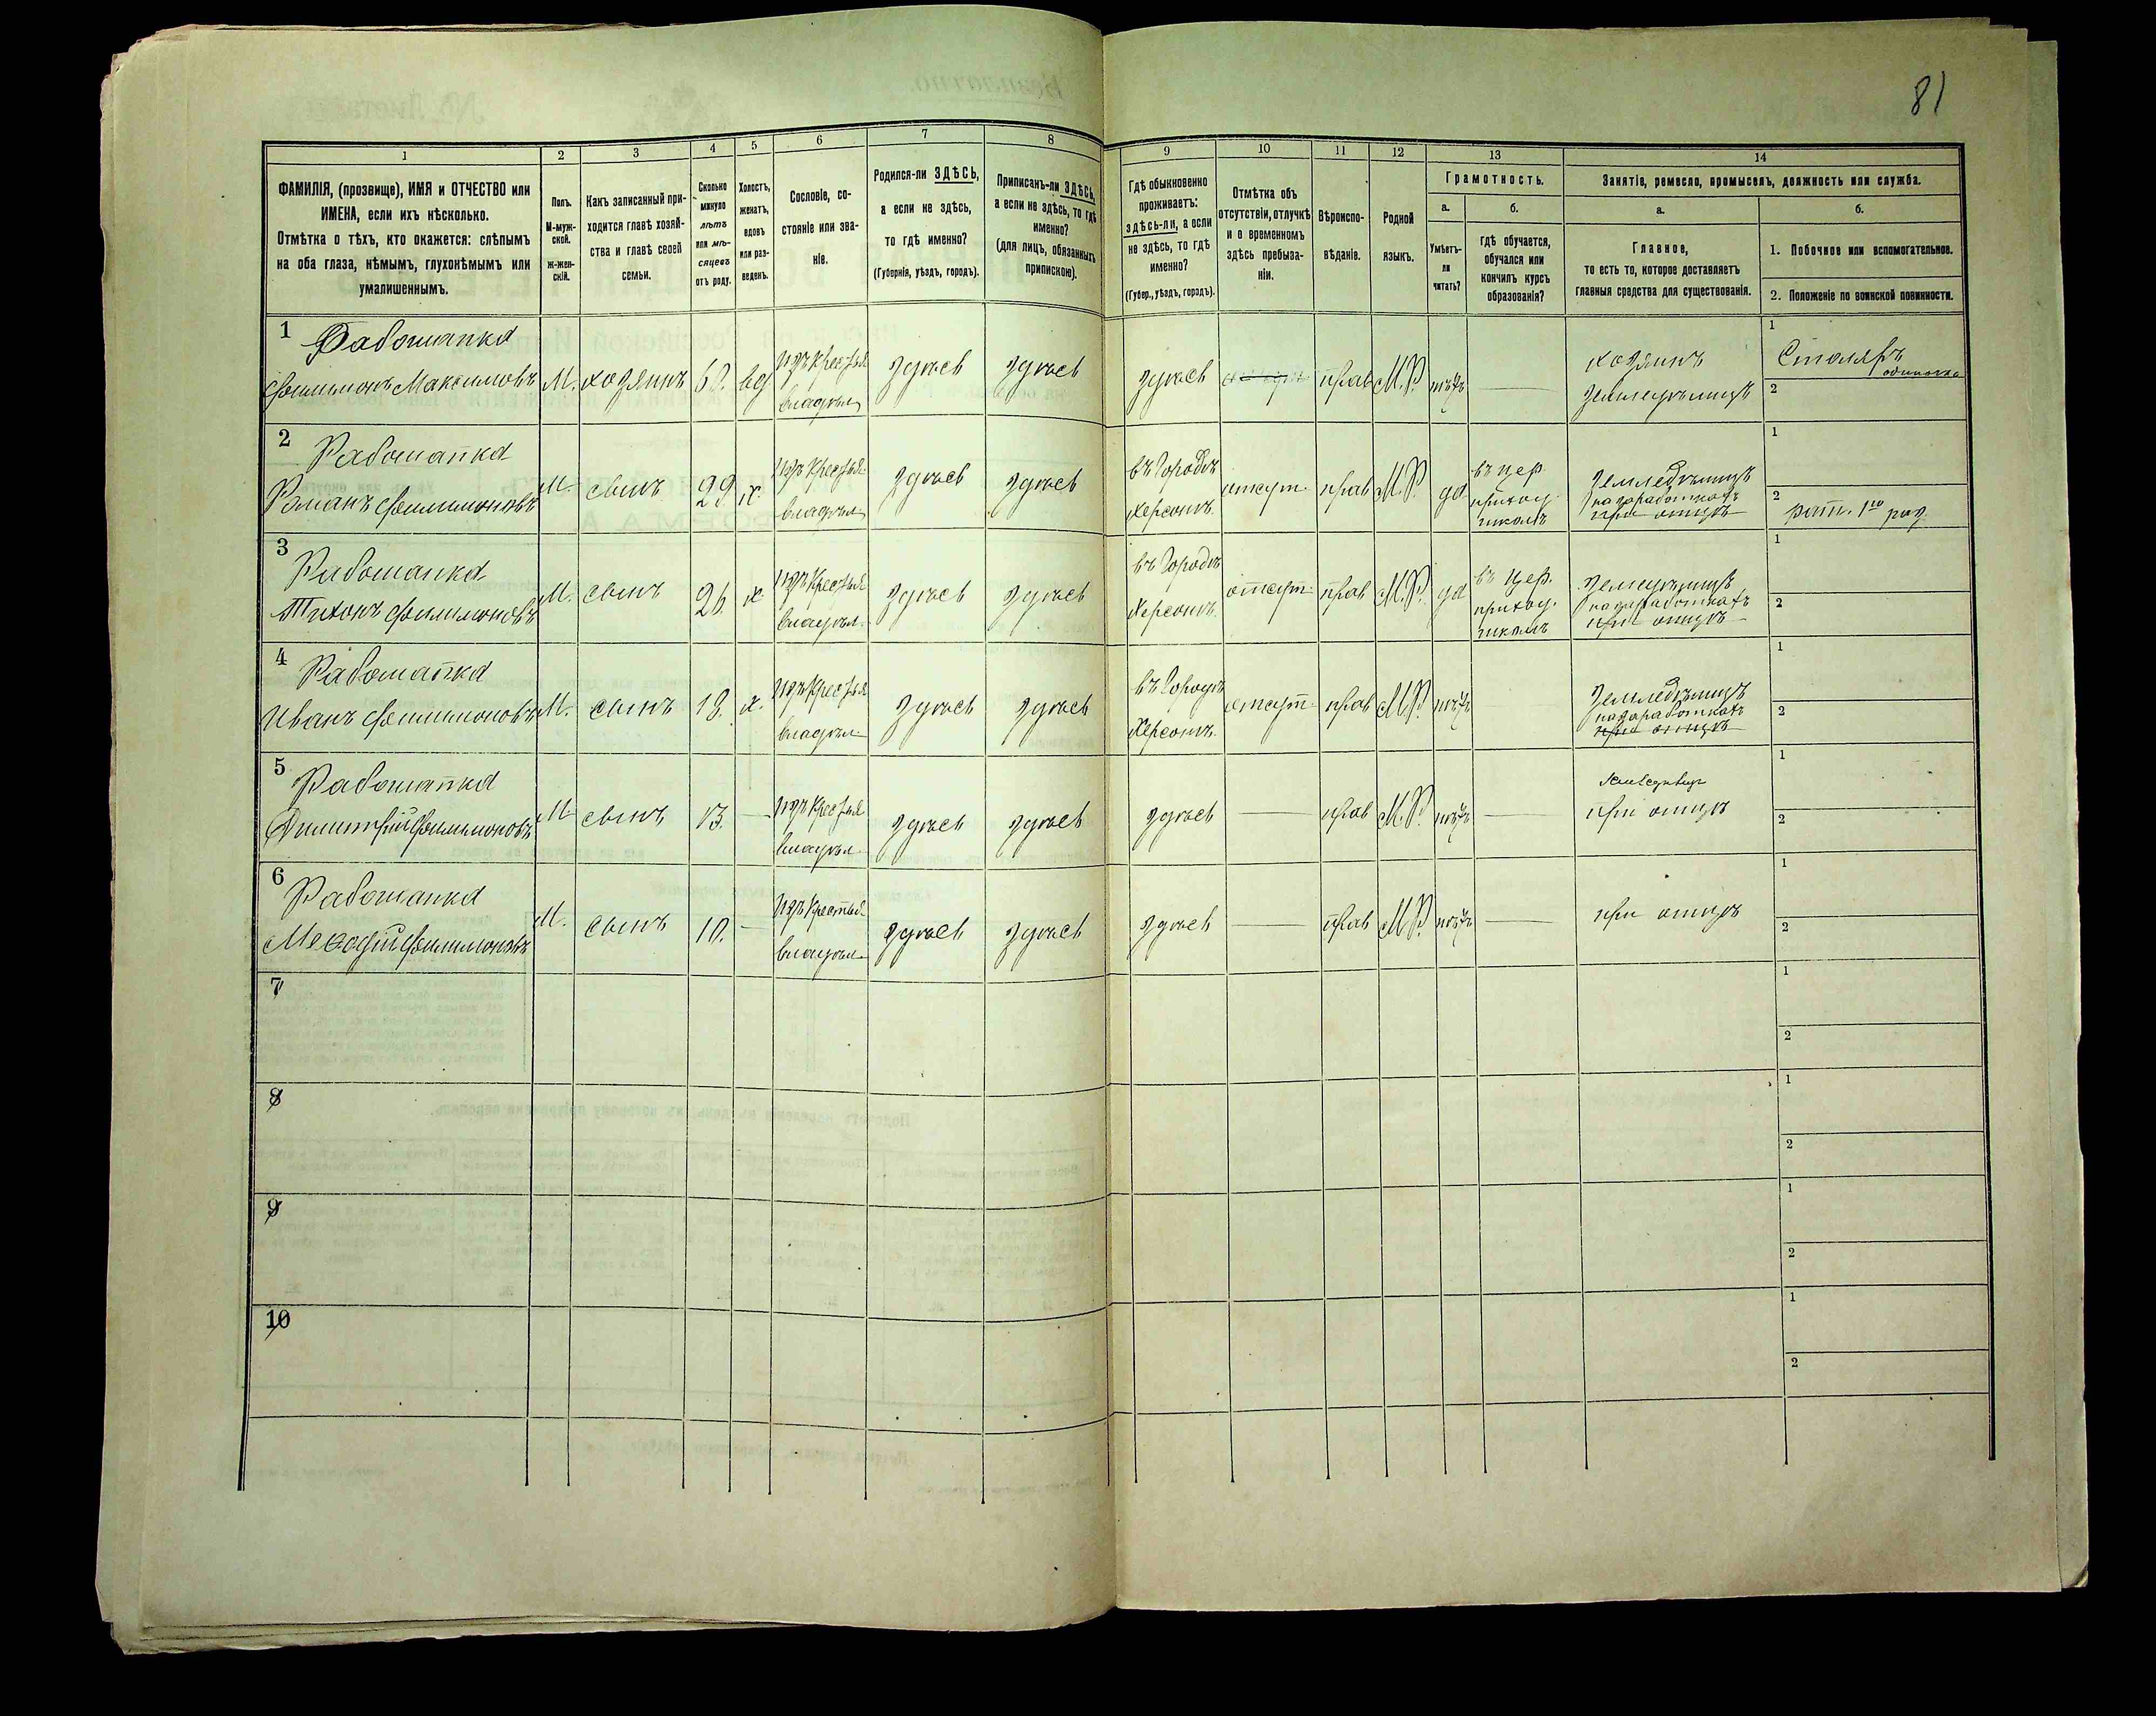 81
1
2
3
4
5
6
7
8
9
10
11
12
13
14
ФАМИЛІЯ, (прозвище), ИМЯ и ОТЧЕСТВО или
ИМЕНА, если ихъ нѣсколько.
Отмѣтка о тѣхъ, кто окажется: слѣпымъ
на оба глаза, нѣмымъ, глухонѣмымъ или
умалишеннымъ.
Полъ.
М-муж-
ской.
Ж-жен-
скій.
Какъ записанный при-
ходится главѣ хозяй-
ства и главѣ своей
семьи.
Сколько
минуло
лѣтъ
или мѣ-
сяцевъ
отъ роду.
Холостъ,
женатъ,
вдовъ
или раз-
веденъ.
Сословіе, со-
стояніе или зва-
ніе.
Родился-ли ЗДѢСЬ,
а если не здѣсь,
то гдѣ именно?
(Губернія, уѣздъ, городъ).
Приписанъ-ли ЗДѢСЬ,
а если не здѣсь, то гдѣ
именно?
(для лицъ, обязанныхъ
припискою).
Гдѣ обыкновенно
проживаетъ:
здѣсь-ли, а если
не здѣсь, то гдѣ
именно?
(Губер., уѣздъ, городъ).
Отмѣтка объ
отсутствіи, отлучкѣ
и о временномъ
здѣсь пребыва-
ніи.
Вѣроиспо-
вѣданіе.
Родной
языкъ.
Грамотность.
а.
Умѣетъ-
ли
читать?
б.
гдѣ обучается,
обучался или
кончилъ курсъ
образованія?
Занятіе, ремесло, промыселъ, должность или служба.
а.
Главное,
то есть то, которое доставляетъ
главныя средства для существованія.
б.
1. Побочное или вспомогательное.
2. Положеніе по воинской повинности.
1 Работапка
Филимонъ Максимовъ М. хозяинъ вд изъ крестья владѣл здѣсь здѣсь здѣсь прав М.Р. нѣтъ —
хозяинъ
земледѣлецъ
1 Столяръ
одиночка
2
2 Работапка
Романъ Филимоновъ М. сынъ 29 х. изъ крестья владѣл здѣсь здѣсь
въ городѣ
Херсонѣ отсут. прав М.Р. да
въ цер
приход.
школѣ
Земледѣлецъ
на заработкахъ
при отцѣ
1
2 рат. 1го раз
3 Работапка
Тихонъ Филимоновъ М. сынъ х изъ крестья владѣл. здѣсь здѣсь
въ городѣ
Херсонѣ. отсут прав М.Р. да
въ цер.
приход.
школѣ
Земледѣлецъ
на заработкахъ
при отцѣ
1
2
4 Работапка
Иванъ Филимоновъ М. сынъ 18. х. изъ крестья владѣл здѣсь здѣсь
въ городѣ
Херсонѣ. отсут прав М.Р. нѣтъ —
Земледѣлецъ
на заработкахъ
при отцѣ
1
2
5 Работапка
Димитрій Филимоновъ М сынъ 13. — изъ крестья владѣл здѣсь здѣсь здѣсь — прав М.Р. нѣтъ —
при отцѣ
1
2
6 Работапка
Меѳодій Филимоновъ М. сынъ 10. — изъ крестья владѣл здѣсь здѣсь здѣсь — прав М.Р. нѣтъ —
при отцѣ
1
2
7
1
2
8
1
2
9
1
2
10
1
2